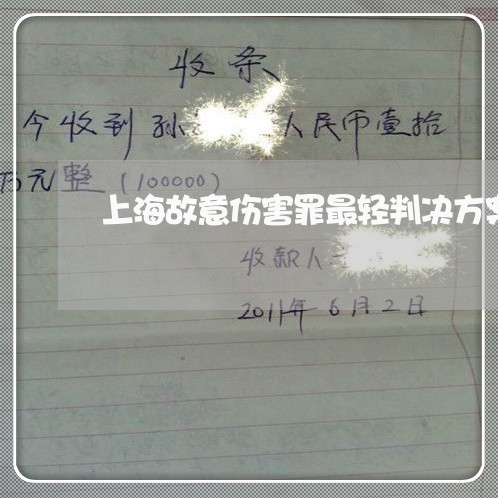 收条
今收到孙 人民币壹拾
万元整(100000)
上海故意伤害罪最轻判决方案
收款人
2011年6月2日